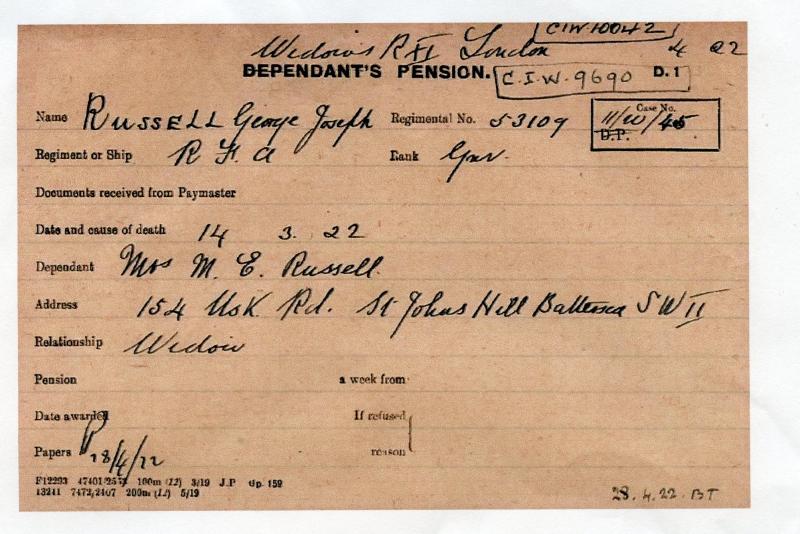 C.I.W. 10042
Widow's R II London 4 22
DEPENDANT'S PENSION. C.I.W. 9690 D.1
Name RUSSELL George Joseph Regimental No. 53109 Case No. 11/W/45
D.P.
Regiment or Ship R F A Rank Gnr.
Documents received from Paymaster
Date and cause of death 14 3. 22
Dependant Mrs M. E. Russell.
Address 154 Usk Rd. St Johns Hill Battersea S W 11
Relationship Widow
Pension a week from
Date awarded If refused
Papers P 28/4/22 reason
F12293 47401/2573 100m (12) 3/19 J.P Gp. 159
13241 7472/2407 200m (12) 5/19
28.4.22. BT